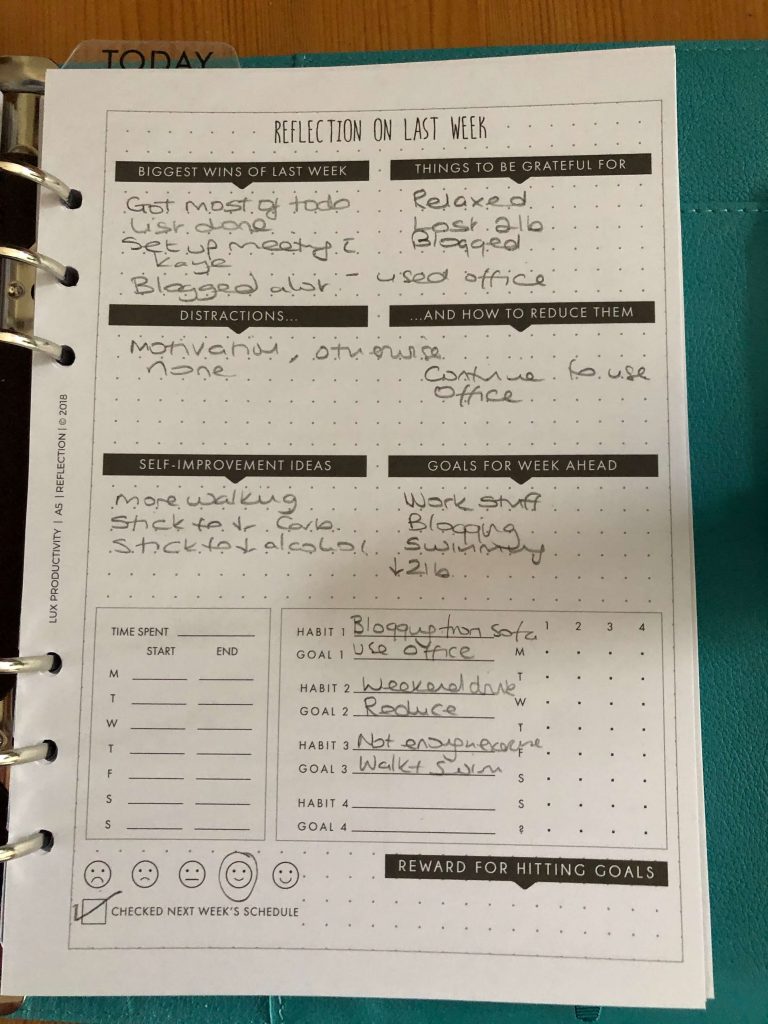 TODAY
REFLECTION ON LAST WEEK
BIGGEST WINS OF LAST WEEK
Got most of todo
list done
Set up meeting c̄
Kaye
Blogged alot - used office
THINGS TO BE GRATEFUL FOR
Relaxed
Lost 2lb
Blogged
DISTRACTIONS...
Motivation, otherwise
none
...AND HOW TO REDUCE THEM
Continue to use
Office
SELF-IMPROVEMENT IDEAS
More walking
Stick to ↓ Carb
Stick to ↓ alcohol
GOALS FOR WEEK AHEAD
Work stuff
Blogging
Swimming
↓2lb
LUX PRODUCTIVITY | A5 | REFLECTION | © 2018
TIME SPENT
START END
M
T
W
T
F
S
S
HABIT 1 Blogging from sofa
GOAL 1 Use office
HABIT 2 Weekend drink
GOAL 2 Reduce
HABIT 3 Not enough exercise
GOAL 3 Walk + Swim
HABIT 4
GOAL 4
1 2 3 4
M
T
W
T
F
S
S
?
REWARD FOR HITTING GOALS
CHECKED NEXT WEEK'S SCHEDULE